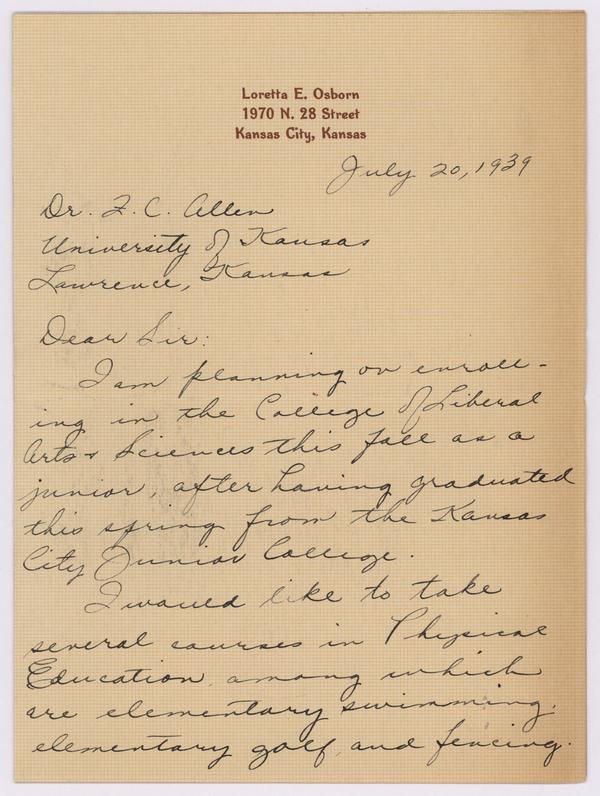 Loretta E. Osborn
1970 N. 28 Street
Kansas City, Kansas
July 20, 1939
Dr. F. C. Allen
University of Kansas
Lawrence, Kansas
Dear Sir:
I am planning on enroll-
ing in the College of Liberal
Arts & Sciences this fall as a
junior, after having graduated
this spring from the Kansas
City Junior College.
I would like to take
several courses in Physical
Education, among which
are elementary swimming,
elementary golf, and fencing.